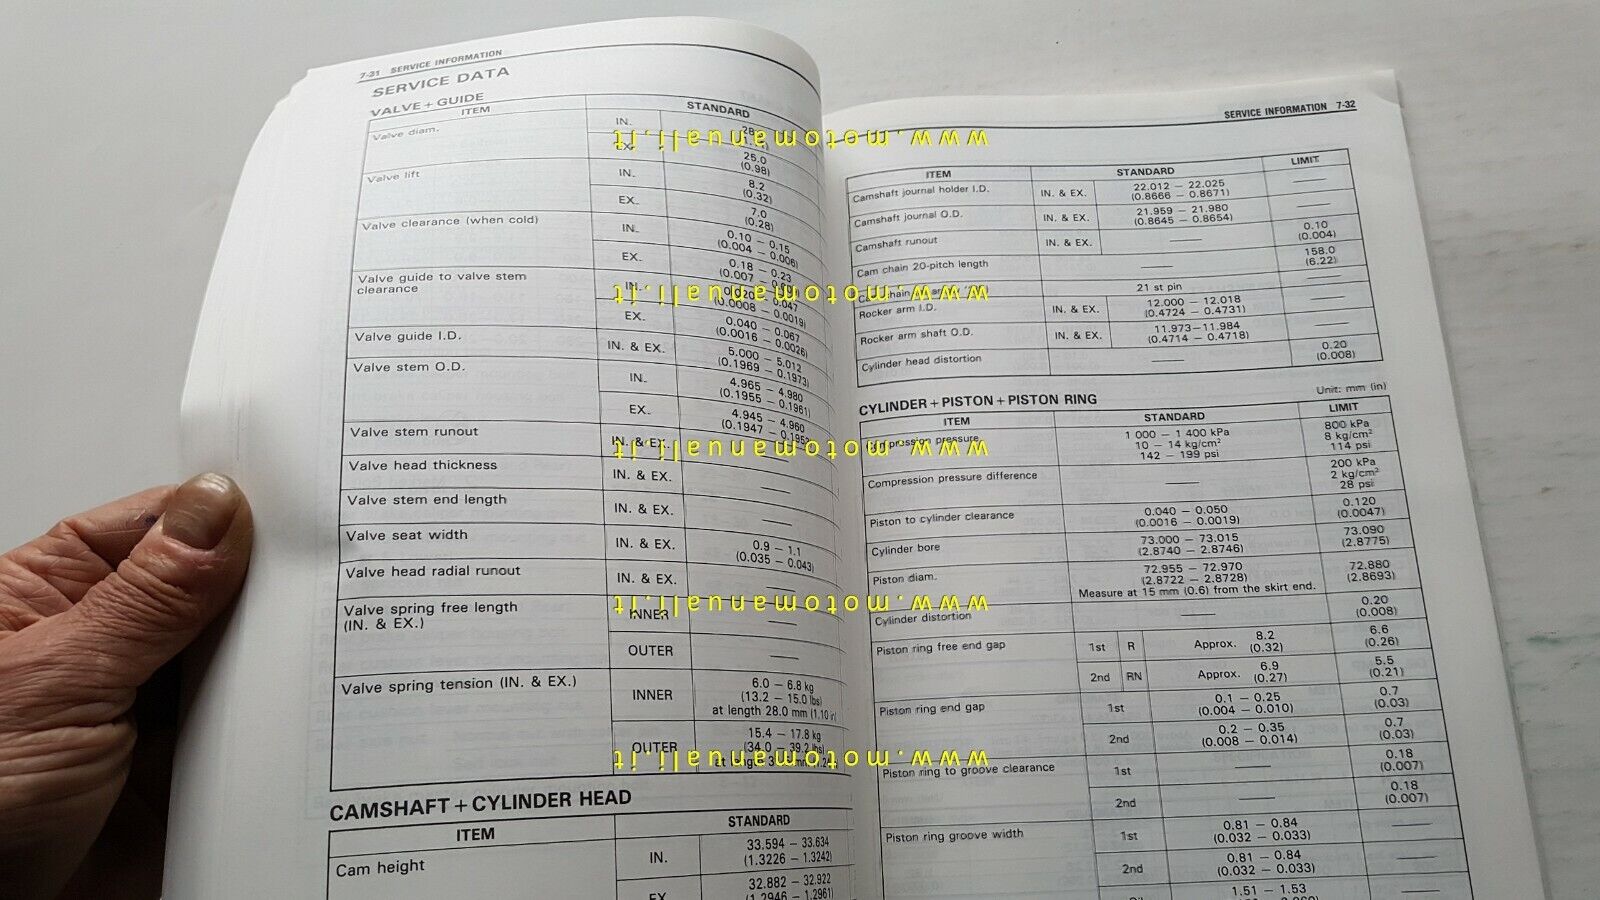 7-31 SERVICE INFORMATION
SERVICE DATA
VALVE + GUIDE
ITEM STANDARD
Valve diam. IN. 28
EX. 25.0
(0.98)
Valve lift IN. 8.2
(0.32)
EX. 7.0
(0.28)
Valve clearance (when cold) IN. 0.10 – 0.15
(0.004 – 0.006)
EX. 0.18 – 0.23
(0.007 –
Valve guide to valve stem
clearance IN. 0.020 – 0.047
(0.0008 – 0.0019)
EX. 0.040 – 0.067
(0.0016 – 0.0026)
Valve guide I.D. IN. & EX. 5.000 – 5.012
(0.1969 – 0.1973)
Valve stem O.D. IN. 4.965 – 4.980
(0.1955 – 0.1961)
EX. 4.945 – 4.960
(0.1947 – 0.1953
Valve stem runout IN. & EX. —
Valve head thickness IN. & EX. —
Valve stem end length IN. & EX. —
Valve seat width IN. & EX. 0.9 – 1.1
(0.035 – 0.043)
Valve head radial runout IN. & EX. —
Valve spring free length
(IN. & EX.) INNER —
OUTER —
Valve spring tension (IN. & EX.) INNER 6.0 – 6.8 kg
(13.2 – 15.0 lbs)
at length 28.0 mm (1.10 in)
OUTER 15.4 – 17.8 kg
(34.0 – 39.2 lbs)
at length
CAMSHAFT + CYLINDER HEAD
ITEM STANDARD
Cam height IN. 33.594 – 33.634
(1.3226 – 1.3242)
EX. 32.882 – 32.922
(1.2946 – 1.2961)
SERVICE INFORMATION 7-32
ITEM STANDARD LIMIT
Camshaft journal holder I.D. IN. & EX. 22.012 – 22.025
(0.8666 – 0.8671) —
Camshaft journal O.D. IN. & EX. 21.959 – 21.980
(0.8645 – 0.8654) —
Camshaft runout IN. & EX. — 0.10
(0.004)
Cam chain 20-pitch length — 158.0
(6.22)
21 st pin —
Rocker arm I.D. IN. & EX. 12.000 – 12.018
(0.4724 – 0.4731) —
Rocker arm shaft O.D. IN. & EX. 11.973–11.984
(0.4714 – 0.4718) —
Cylinder head distortion — 0.20
(0.008)
CYLINDER + PISTON + PISTON RING Unit: mm (in)
ITEM STANDARD LIMIT
Compression pressure 1 000 – 1 400 kPa
10 – 14 kg/cm²
142 – 199 psi 800 kPa
8 kg/cm²
114 psi
Compression pressure difference — 200 kPa
2 kg/cm²
28 psi
Piston to cylinder clearance 0.040 – 0.050
(0.0016 – 0.0019) 0.120
(0.0047)
Cylinder bore 73.000 – 73.015
(2.8740 – 2.8746) 73.090
(2.8775)
Piston diam. 72.955 – 72.970
(2.8722 – 2.8728)
Measure at 15 mm (0.6) from the skirt end. 72.880
(2.8693)
Cylinder distortion — 0.20
(0.008)
Piston ring free end gap 1st R Approx. 8.2
(0.32) 6.6
(0.26)
2nd RN Approx. 6.9
(0.27) 5.5
(0.21)
Piston ring end gap 1st 0.1 – 0.25
(0.004 – 0.010) 0.7
(0.03)
2nd 0.2 – 0.35
(0.008 – 0.014) 0.7
(0.03)
Piston ring to groove clearance 1st — 0.18
(0.007)
2nd — 0.18
(0.007)
Piston ring groove width 1st 0.81 – 0.84
(0.032 – 0.033) —
2nd 0.81 – 0.84
(0.032 – 0.033) —
1.51 – 1.53 —
www.motomanuali.it
www.motomanuali.it
www.motomanuali.it
www.motomanuali.it
www.motomanuali.it